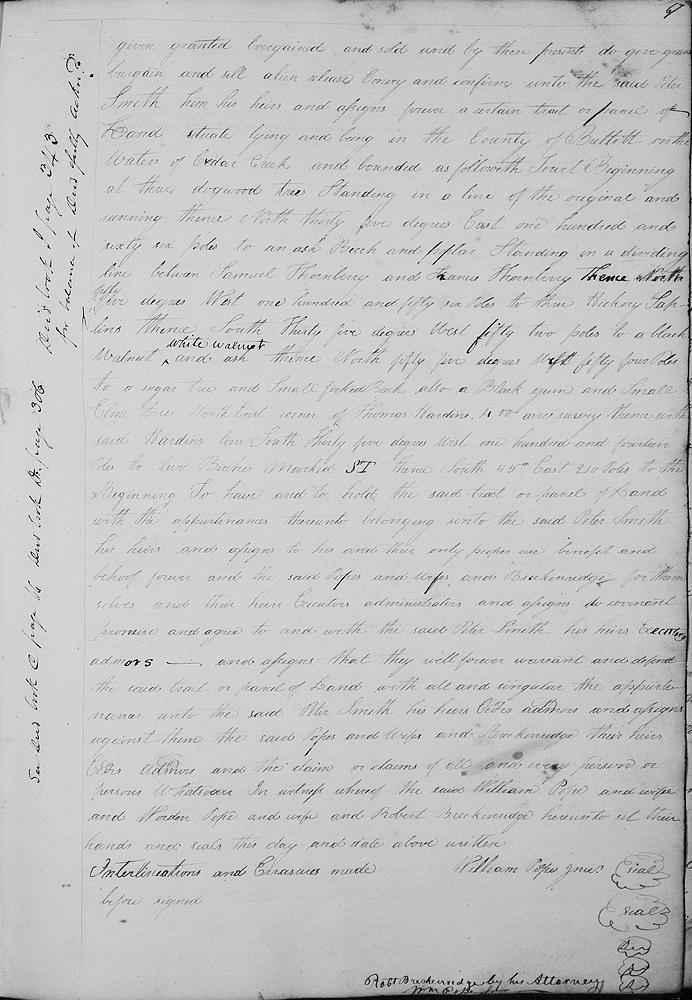 67
given granted bargained and sold and by these presents do give grant
bargain and sell alien release Convey and confirm unto the said Peter
Smith him his heirs and assigns forever a certain tract or parcel of
Land situate lying and being in the County of Bullott on the
Waters of Cedar Creek and bounded as followeth Towit Beginning
at three dogwood trees Standing in a line of the original and
running thence North thirty five degrees East one hundred and
sixty six poles to an ash Beech and poplar Standing in a dividing
line between Samuel Thornberry and Francis Thornberry Thence North
fifty
five degrees West one hundred and fifty six Poles to three Hickory Sap
lins thence South Thirty five degrees West fifty two poles to a black
white walnut
Walnut ^ and ash thence North fifty five degrees West fifty four Poles
to a sugar tree and Small forked Beech also a Black gum and Small
Elm three North East corner of Thomas Hardins 400 acre survey thence with
said Hardins line South Thirty five degrees West one hundred and fourteen
Poles to two Beeches Marked ST thence South 55° East 210 Poles to the
Beginning To have and to hold the said tract or parcel of Land
with the appurtenances thereunto belonging unto the said Peter Smith
his heirs and assigns to his and their only proper use benefit and
behoof forever and the said Popes and Wifes and Breckenridge for them
selves and their heirs Executors administrators and assigns do covenant
promise and agree to and with the said Peter Smith his heirs Executors
admors — and assigns that they will forever warrant and defend
the said tract or parcel of Land with all and singular the appurte
nances unto the said Peter Smith his heirs Exors admors and assigns
against them the said Popes and Wifes and Breckenridge their heirs
Exors admors and the claim or claims of all and every person or
persons Whatsoever In witness whereof the said William Pope and wife
and Worden Pope and wife and Robert Breckenridge hereunto set their
hands and seals this day and date above written
Interlineations and Erasures made William Pope Junr. seal
before signed seal
Robt Breckenridge by his Attorney
Wm Pope
See Deed book C page 16 Deed book D. page 306 Deed book I page 343
for balance of Deed fully acknd.